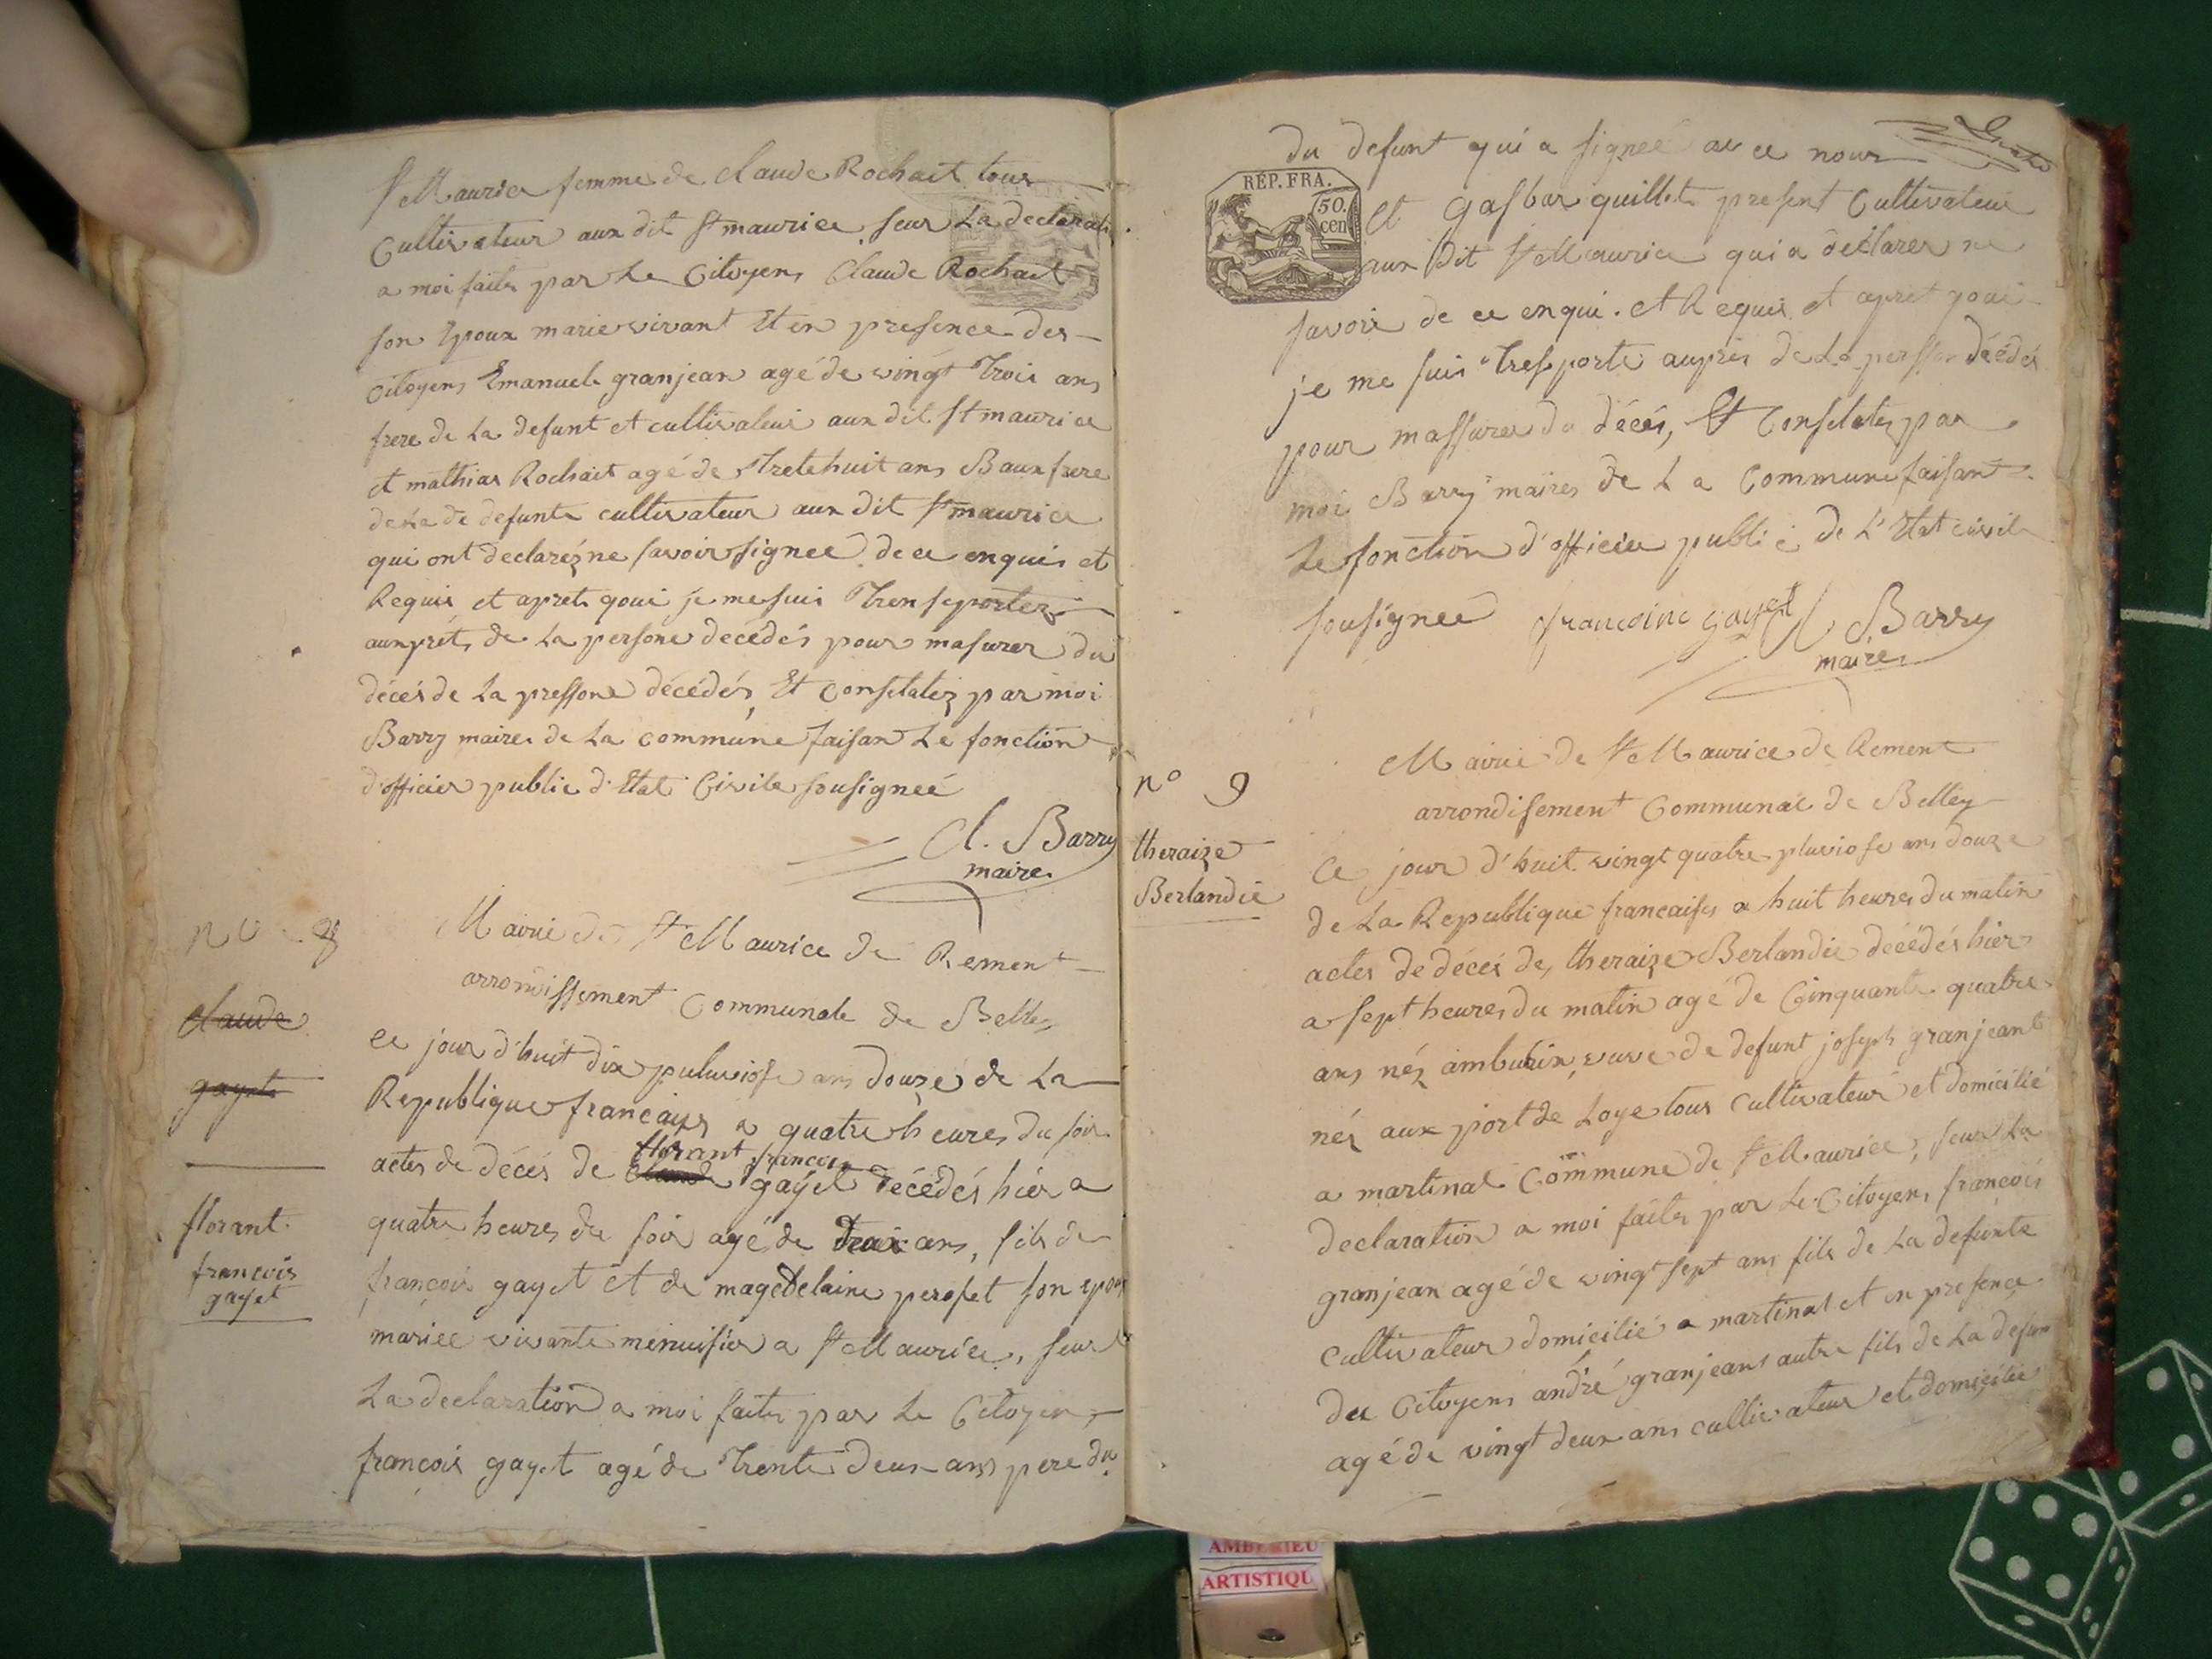 St Maurice femme de claude Rochait tous
Cultivateur aux dit St maurice seur La declarati
a moi faite par Le Citoyens Claude Rochait
son Epoux marie vivant Et en presence des
citoyens Emanuel granjean agé de vingt Trois ans
frere de La defunt et cultivateur aux dit St maurice
et mathias Rochait agé de Tretehuit ans Baux frere
de La de defunte cultivateur aux dit St maurice
qui ont declarez ne savoir signeé de ce enquis et
Requis et apret qoui je me suis Trensportez
aux prét de La persone decédés pour masurer du
décés de La pressone décédés, Et Constatez par moi
Barry maire de La commune faisan Le fonction
d'officier public d'Etat Civile sousigneé
Cl. Barry
maire
no 8
claude
gayet
florant
francois
gayet
Mairie de St Maurice de Rement
arrondissement Communale de Belley
ce jour d'huit dix puluviose ans douze de La
Republique francaises a quatre heures du soir
florant francois
actes de décés de gayet decédés hier a
quatre heures du soir agé de ans, fils de
françois gayet et de magedelaine peroset son epous
mariee vivante menuisier a St Maurice, seur
La declaration a moi faite par Le Citoyen
françois gayet agé de Trente deux ans pere du
du defunt qui a signeé avce nous
RÉP. FRA.
50. cen
et gasbar quillet present Cultivateur
aux Dit St Maurice qui a déclarer ne
savoir de ce enqui. et Requis et apret qoui
je me suis Tresporte auprés de La décédés
pour massurer du décés, Et Constatez par
moi Barry maires de La Commune faisant
Le fonction d'officier public de L'Etat civile
sousigneé francoins gayet Barry
maire
no 9
theraize
Berlandié
Mairie de St Maurice de Rement
arrondisement Communal de Belley
Ce jour d'huit vingt quatre pluviose ans douze
de La Republique francaises a huit heures du matin
actes de décés de theraize Berlandie décédés hier
a sept heures du matin agé de Cinquante quatre
ans néz ambutrix, veuve de defunt joseph granjeant
néz aux port de Loye tous Cultivateur et domicilié
a martinal Commune de St Maurice, seur La
declaration a moi faite par Le Citoyens françois
granjean agé de vingt sept ans fils de La defunte
cultivateur domicilié a martinal et en presence
des Citoyens andré granjeans autre fils de La defun
agé de vingt deux ans cultivateur et domicilié
AMBERIEU
ARTISTIQU